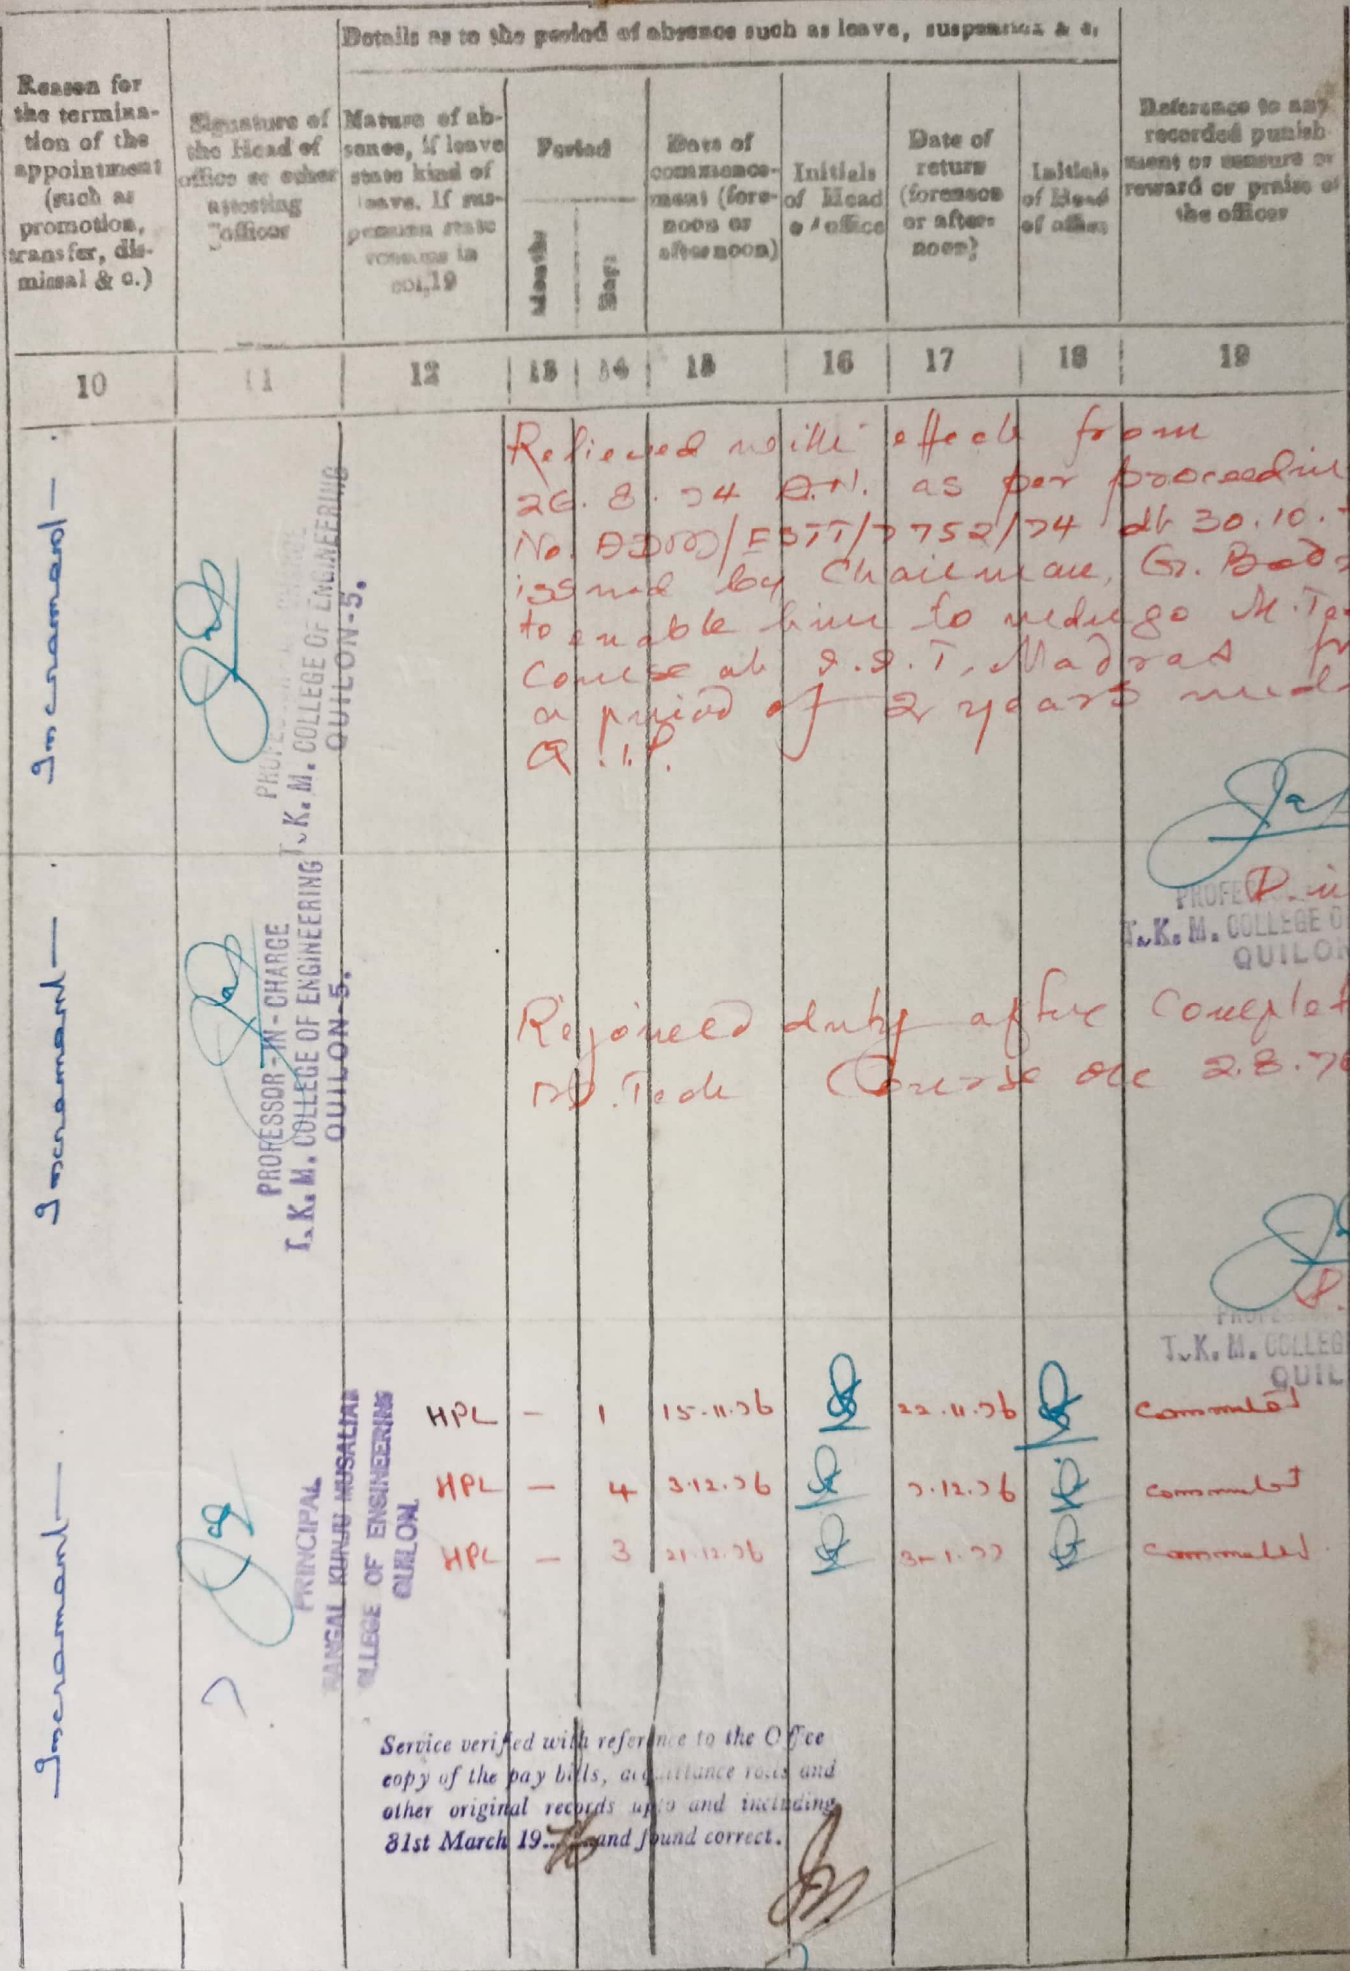 Details as to the period of absence such as leave, suspension & c.
Reason for
the termina-
tion of the
appointment
(such as
promotion,
transfer, dis-
missal & c.)
Signature of
the Head of
office or other
attesting
officer
Nature of ab-
sence, if leave
state kind of
leave. If sus-
pension state
reasons in
col,19
Period
Months
Days
Date of
commence-
ment (fore-
noon or
afternoon)
Initials
of Head
of office
Date of
return
(forenoon
or after-
noon)
Initials
of Head
of office
Reference to any
recorded punish-
ment or censure or
reward or praise of
the officer
10 11 12 13 14 15 16 17 18 19
Increment
Relieved with effect from
26.8.74 A.N. as per proceedin
No. /ESTT/7752/74 dt 30.10.
issued by Chairman, G. Bod
to enable him to undergo M.Te
Course at I.I.T, Madras
a period of 2 years
Q.I.P.
T.K.M. COLLEGE OF ENGINEERING
QUILON-5.
T.K.M. COLLEGE O
QUILON
Increment
PROFESSOR-IN-CHARGE
T.K.M. COLLEGE OF ENGINEERING
QUILON-5.
Rejoined duty after Complet
M.Tech Course on 2.8.76
T.K.M. COLLEG
QUIL
Increment
PRINCIPAL
ANGAL KUNJU MUSALIAR
OLLEGE OF ENGINEERING
QUILON.
HPL – 1 15-11-76 22.11.76 Commuted
HPL – 4 3.12.76 7.12.76 Commuted
HPL – 3 21.12.76 3-1.77 Commuted
Service verified with reference to the Office
copy of the pay bills, acquittance rolls and
other original records upto and including
31st March 19...76 and found correct.